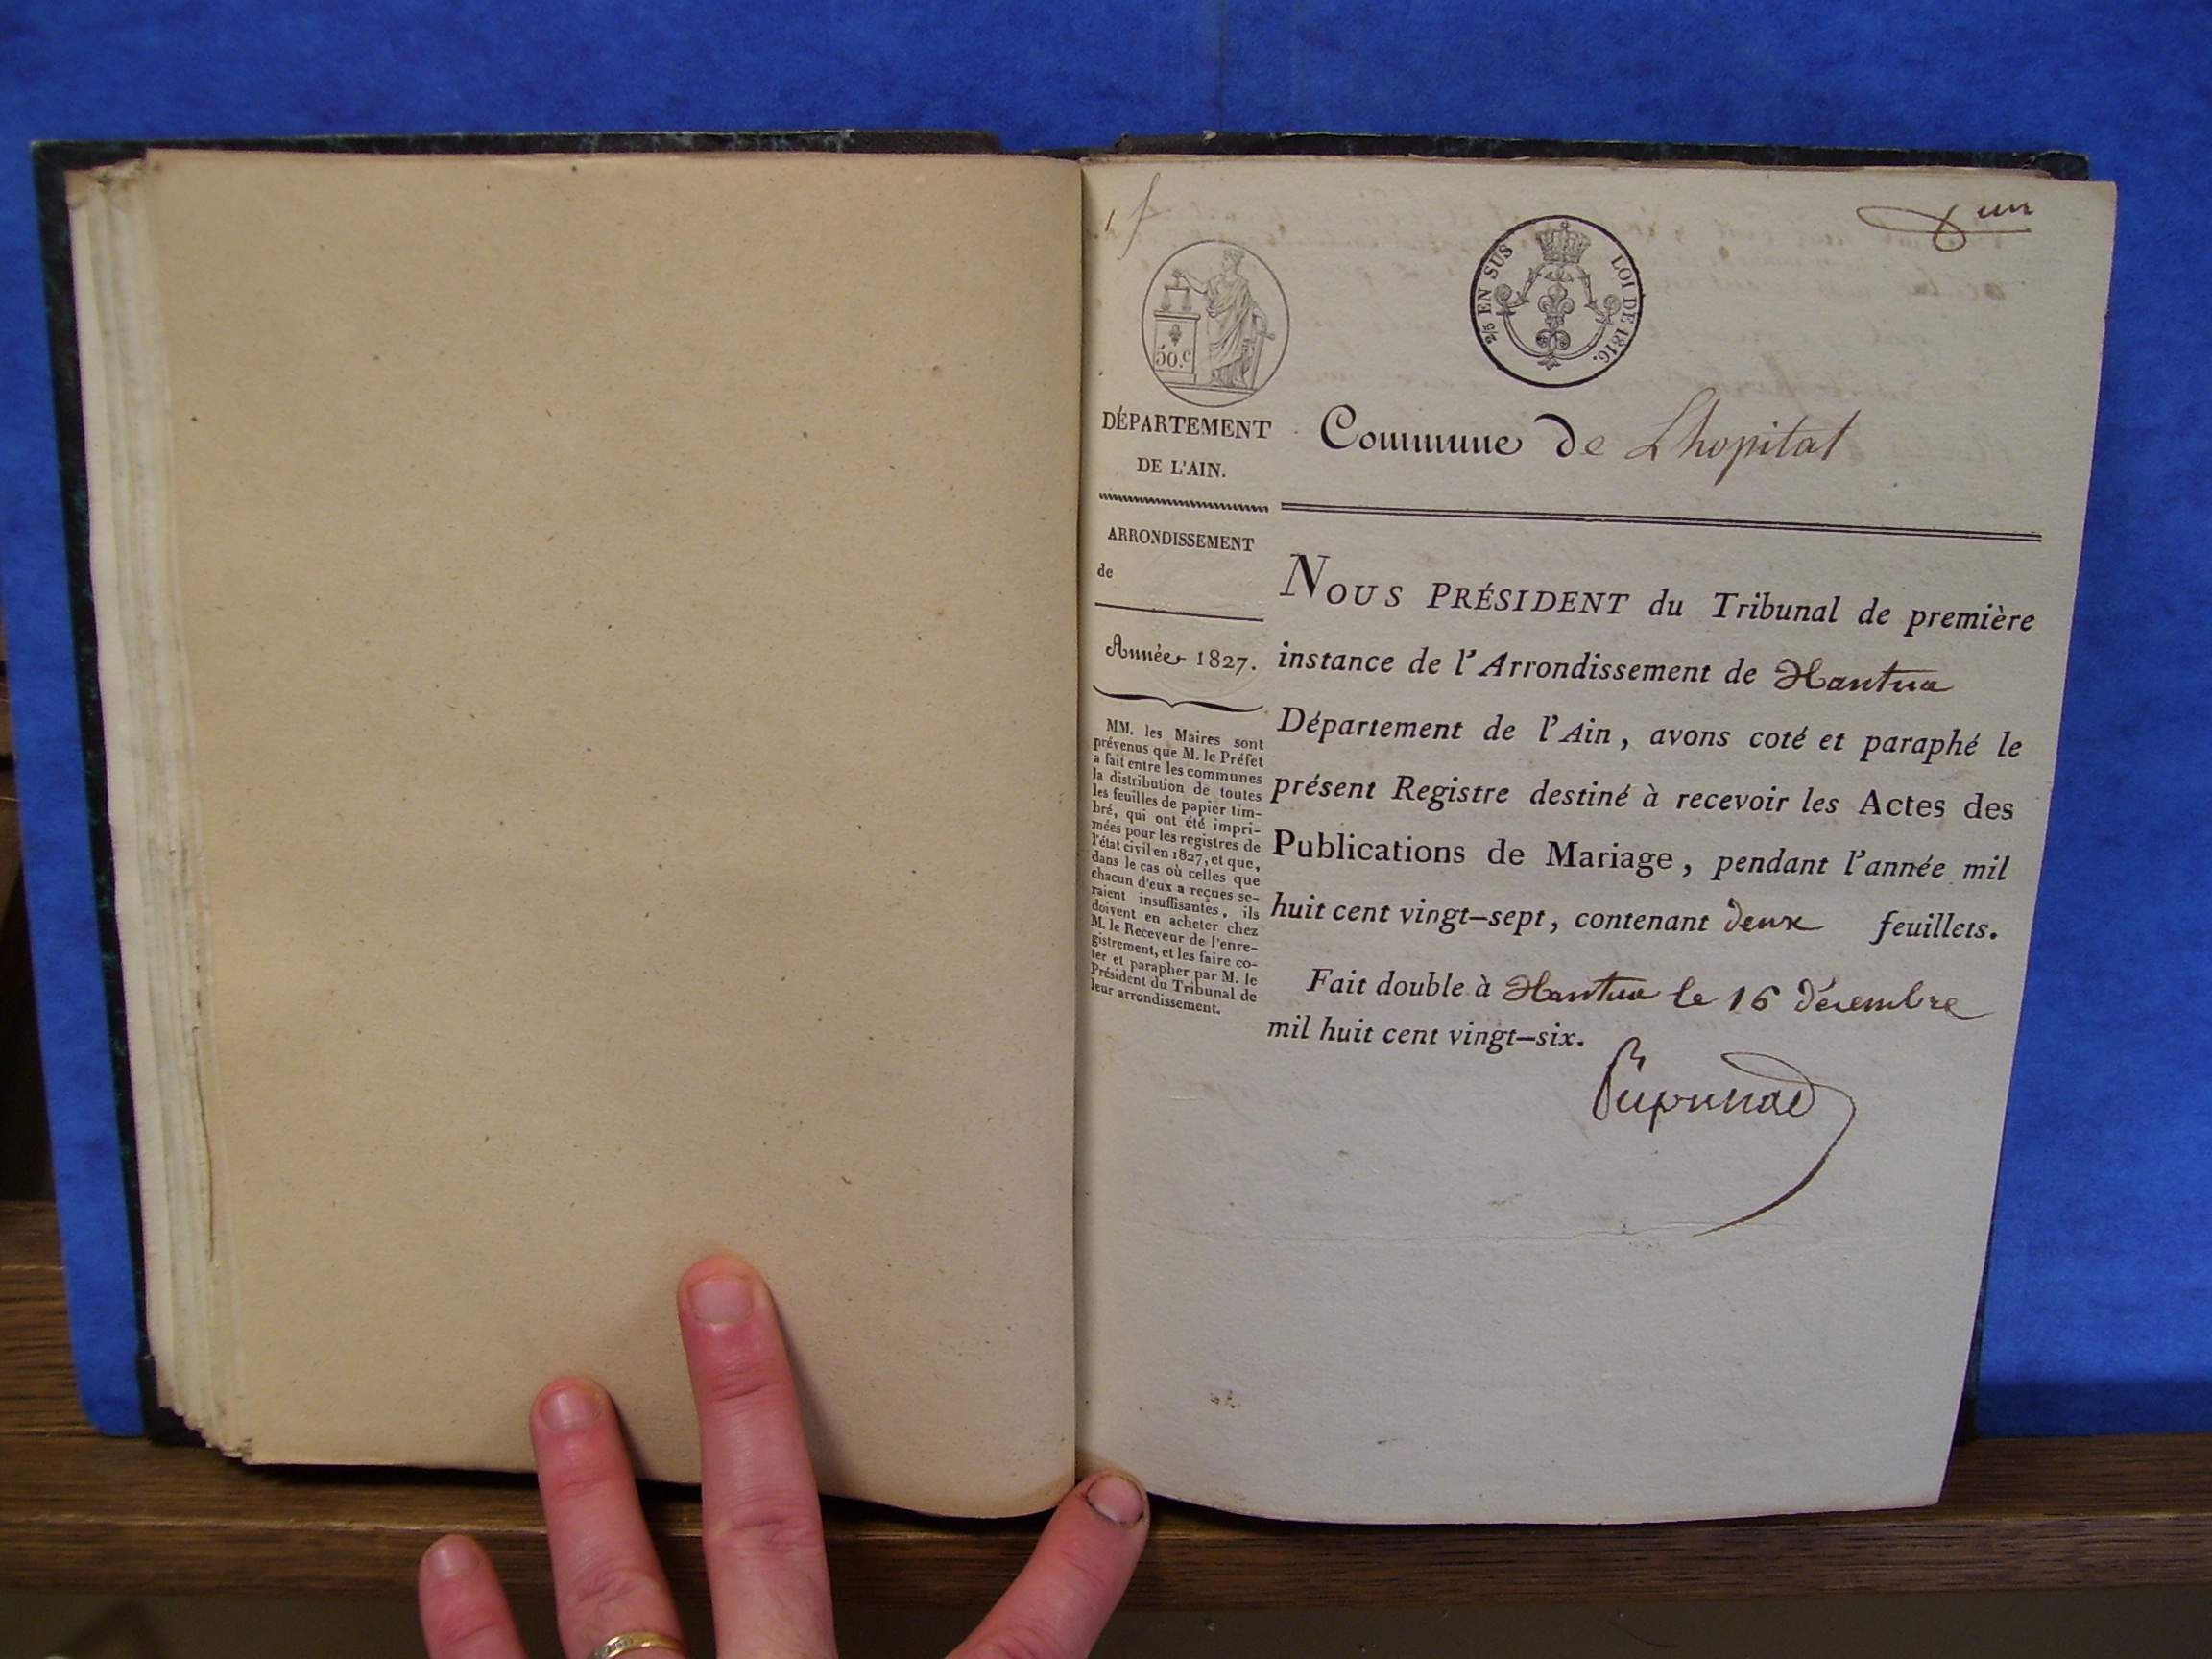 1
un
50.c
2/5 EN SUS LOI DE 1816.
DÉPARTEMENT
DE L'AIN.
ARRONDISSEMENT
de
Année 1827.
MM. les Maires sont
prévenus que M. le Préfet
a fait entre les communes
la distribution de toutes
les feuilles de papier tim-
bré, qui ont été impri-
mées pour les registres de
l'état civil en 1827, et que,
dans le cas où celles que
chacun d'eux a reçues se-
raient insuffisantes, ils
doivent en acheter chez
M. le Receveur de l'enre-
gistrement, et les faire co-
ter et parapher par M. le
Président du Tribunal de
leur arrondissement.
Commune de Lhopital
NOUS PRÉSIDENT du Tribunal de première
instance de l'Arrondissement de Nantua
Département de l'Ain, avons coté et paraphé le
présent Registre destiné à recevoir les Actes des
Publications de Mariage, pendant l'année mil
huit cent vingt-sept, contenant deux feuillets.
Fait double à Nantua le 16 décembre
mil huit cent vingt-six.